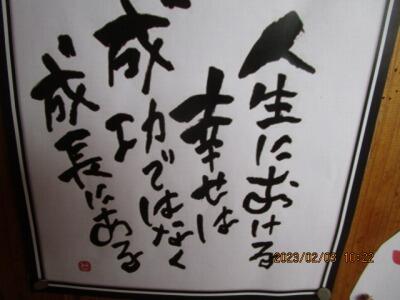 人生における
幸せは
"成功ではなく
"成長にある
2023/02/03 10:22